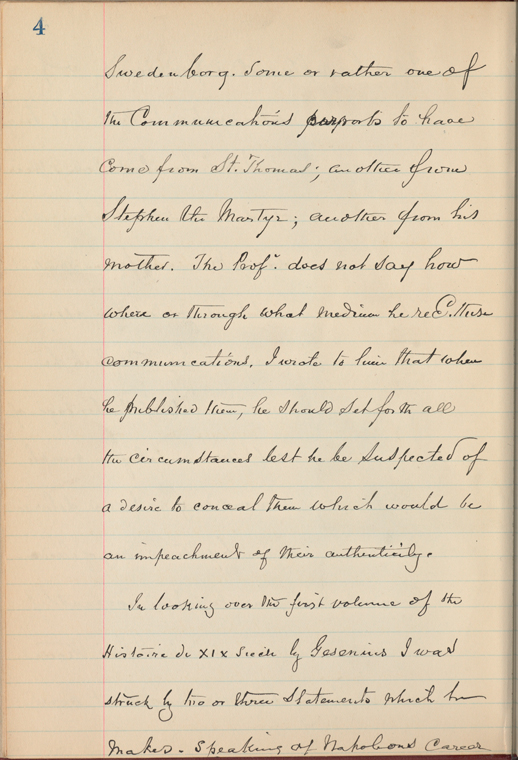 4
Swedenborg. Some or rather one of
the Communications purports to have
come from St. Thomas; another from
Stephen the Martyr; another from his
mother. The Profr. does not say how
where or through what medium he recd. these
communications. I wrote to him that when
he published them, he should set forth all
the circumstances lest he be suspected of
a desire to conceal them which would be
an impeachment of their authenticity.
In looking over the first volume of the
Histoire du XIX Siecle by Gesenius I was
struck by two or three statements which he
makes. Speaking of Napoleons Career